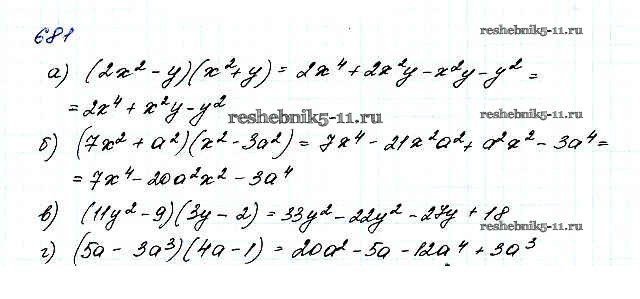 681
reshebnik5-11.ru
а) (2x² - y)(x² + y) = 2x⁴ + 2x²y - x²y - y² =
= 2x⁴ + x²y - y²
reshebnik5-11.ru
б) (7x² + a²)(x² - 3a²) = 7x⁴ - 21x²a² + a²x² - 3a⁴ =
= 7x⁴ - 20a²x² - 3a⁴
в) (11y² - 9)(3y - 2) = 33y² - 22y² - 27y + 18
reshebnik5-11.ru
г) (5a - 3a³)(4a - 1) = 20a² - 5a - 12a⁴ + 3a³